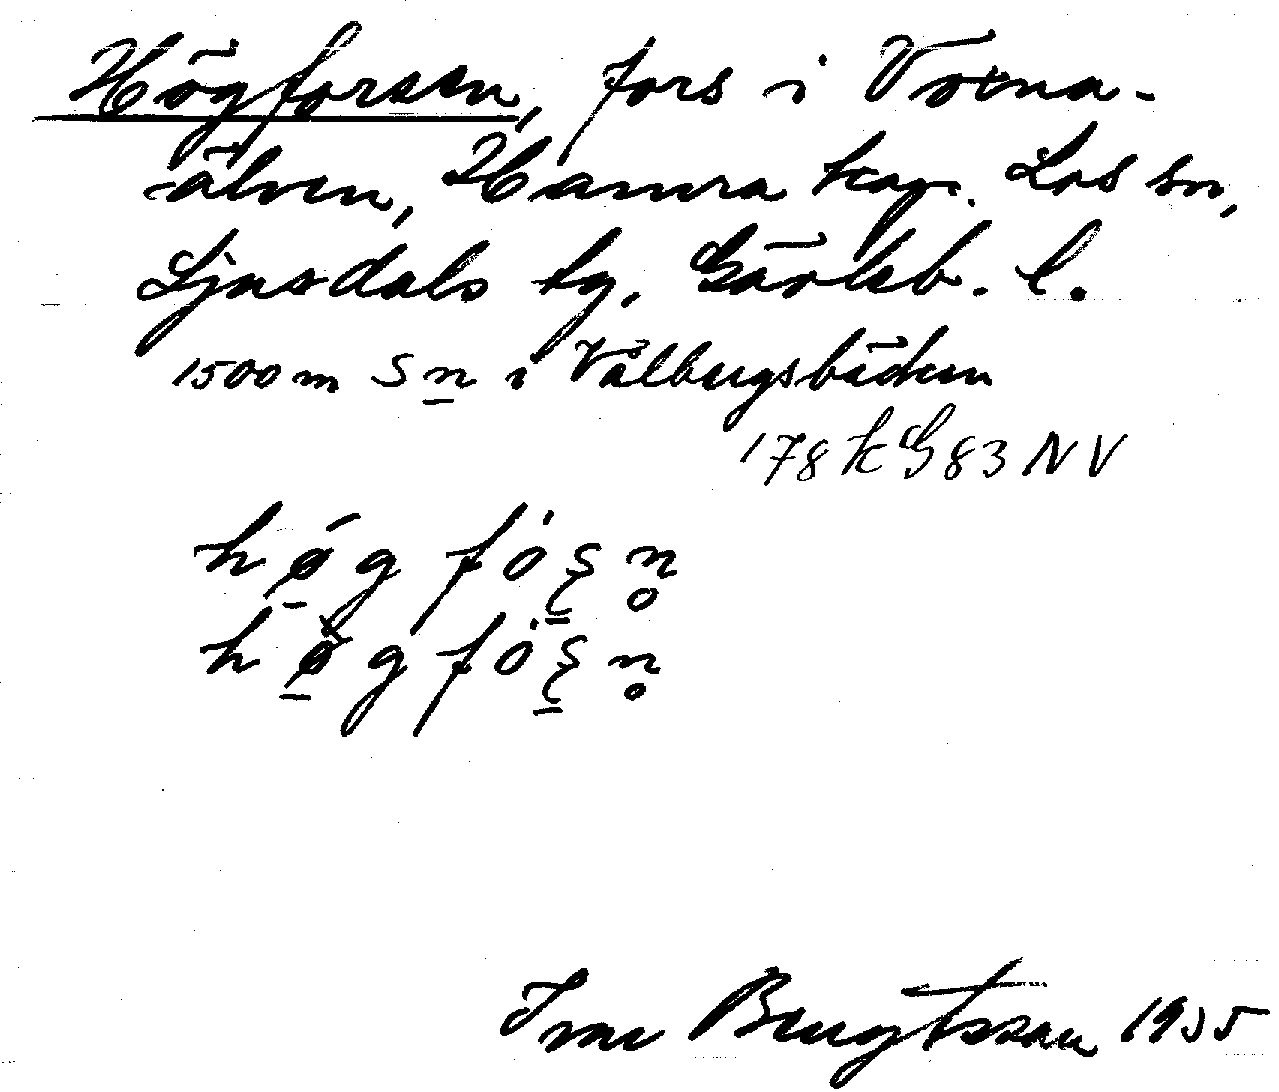 Högforsen, fors i Voxna-
älven, Hamra kap. Los sn,
Ljusdals tg, Gävleb. l.
1500 m S n i Valbergsbäcken
178 k G 83 NV
hǿ̱g fo̍ʂn̥
hø̱̀g fo̍ʂn̥
Ivar Bengtsson 1935